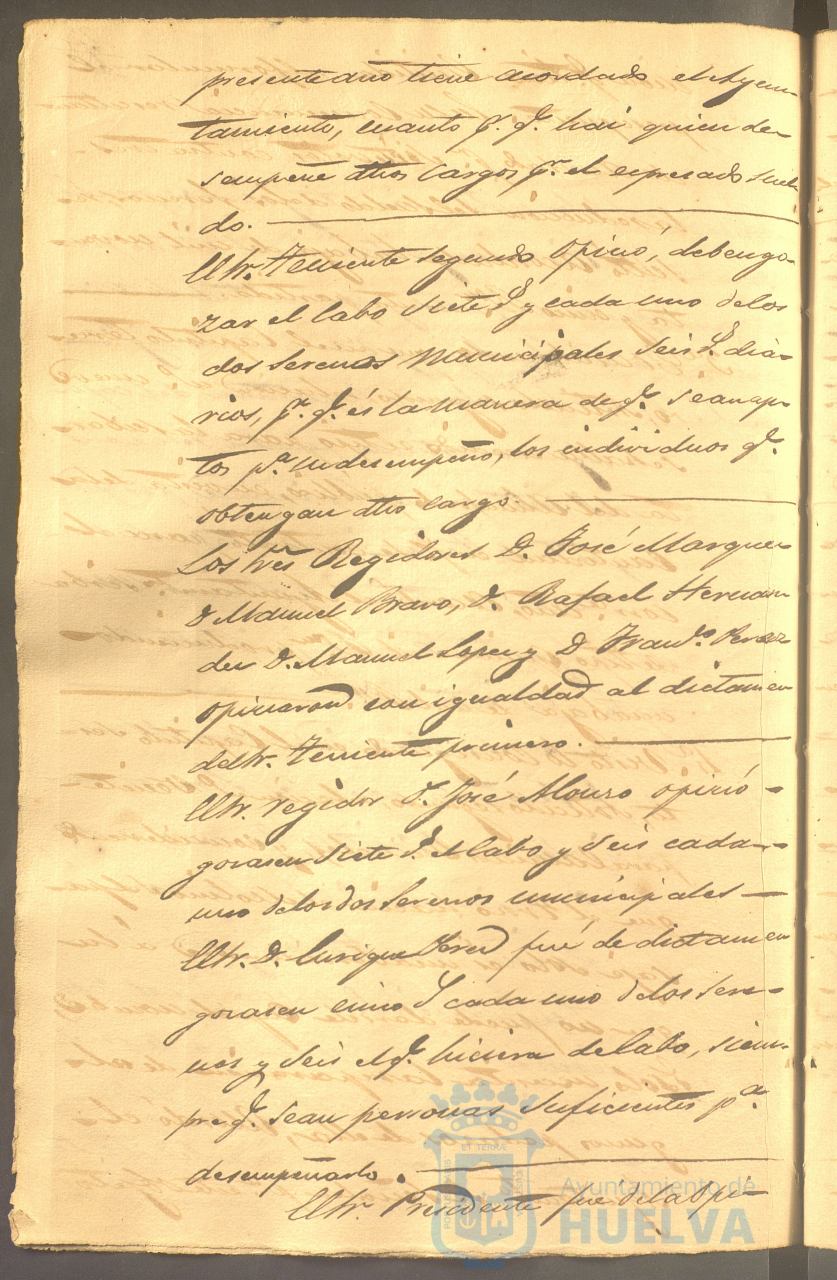 presente año tiene acordado el Ayun-
tamiento, cuanto p.r q.e hai quien de-
sempeñe dhos cargos p.r el espresado suel-
do.
El Sr. Teniente segundo opinó, deben go-
zar el Cabo siete r.s y cada uno de los
dos serenos municipales seis r.s dia-
rios, p.r q.e és la manera de q.e sean ap-
tos p.a su desempeño, los individuos q.e
obtengan dho cargo.
Los Sres Regidores D. José Marquez
D Manuel Bravo, D. Rafael Hernan-
dez D. Manuel Lopez y D Fran.co Perez
opinaron con igualdad al dictamen
del Sr. Teniente primero.
El Sr. regidor D. José Alonso opinó -
gozasen siete r.s el Cabo y seis cada-
uno de los dos serenos municipales
El Sr. D. Enrique Perez fué de dictamen
gozasen cinco r.s cada uno de los sere-
nos y seis el q.e hiciera de Cabo, siem-
pre q.e sean personas suficientes p.a
desempeñarlo.
El Sr. Presidente fué de la opi-
Ayuntamiento de
HUELVA